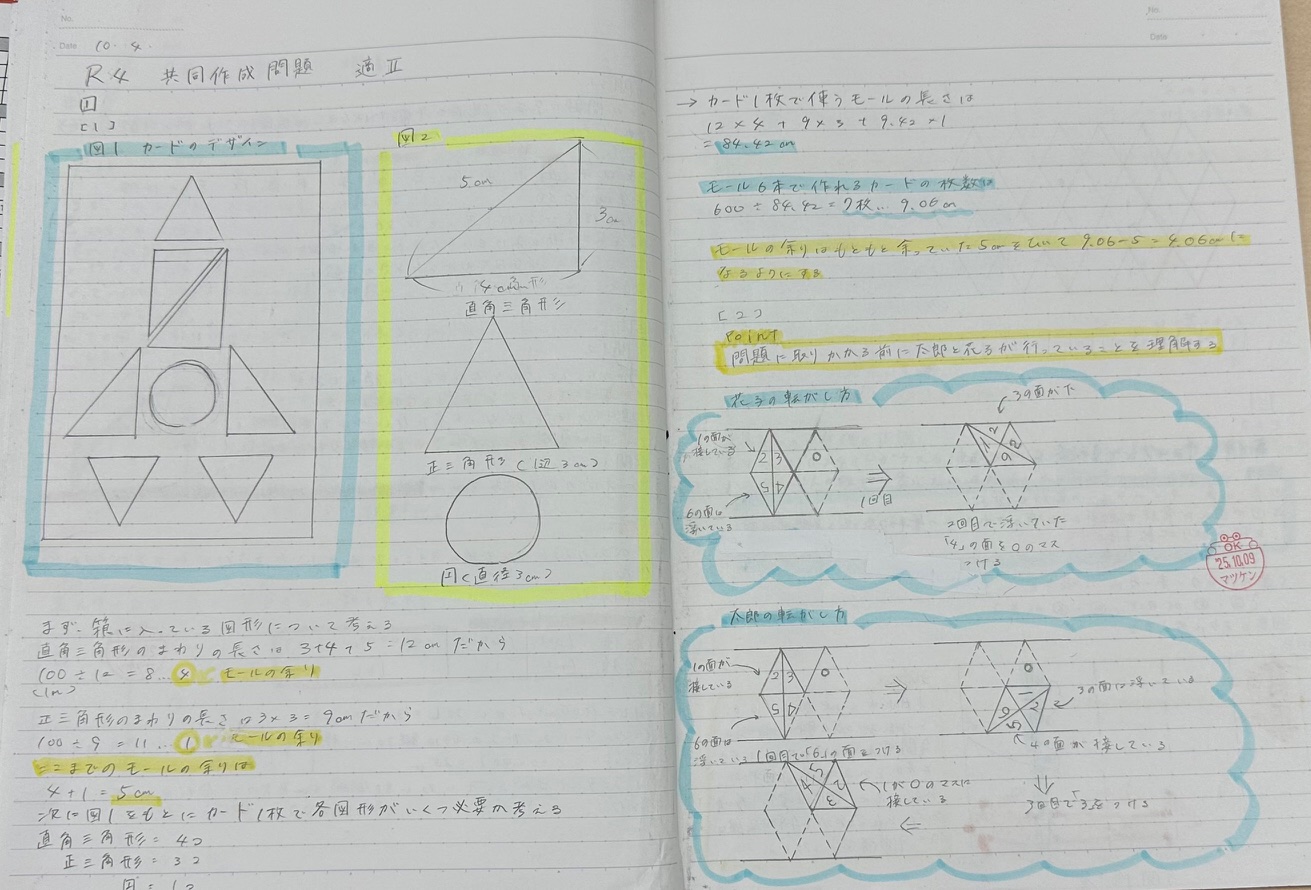 No.
Date 10. 4.
R4 共同作成問題 適Ⅱ
1
[1]
図1 カードのデザイン
図2
5cm
3cm
4cm
直角三角形
正三角形(1辺3cm)
円(直径3cm)
まず、箱に入っている図形について考える
直角三角形のまわりの長さは 3+4+5=12cm だから
100÷12=8…4 モールの余り
(1m)
正三角形のまわりの長さは3×3=9cmだから
100÷9=11…1 モールの余り
ここまでのモールの余りは
4+1=5cm
次に図1をもとにカード1枚で各図形がいくつ必要か考える
直角三角形=4つ
正三角形=3つ
円=1つ
No.
Date
→カード1枚で使うモールの長さは
12×4+9×3+9.42×1
=84.42cm
モール6本で作れるカードの枚数は
600÷84.42=7枚…9.06cm
モールの余りはもともと余っていた5cmをひいて9.06-5=4.06cmに
なるようにする
[2]
Point
問題に取りかかる前に太郎と花子が行っていることを理解する
花子の転がし方
1の面が
接している
2 3
5 4
0
6の面は
浮いている
⇒
1回目
3の面が下
1 2
6 2
2回目で浮いていた
「4」の面を0のマス
つける
OK
25.10.09
マツケン
太郎の転がし方
1の面が
接している
2 3
5 4
0
6の面は
浮いている
⇒
0
1
6 2
5
3の面は浮いている
4の面が接している
1回目で「6」の面をつける
⇓
3回目で3をつける
5
4 2
3
1が0のマスに
接している
⇐